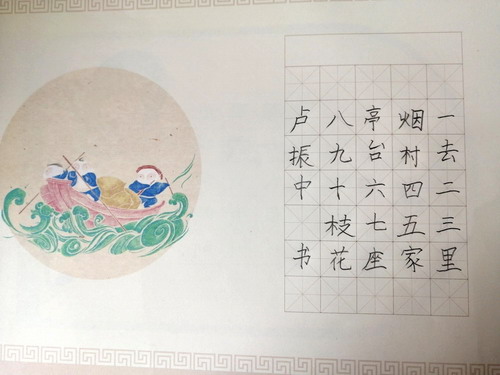 一去二三里
烟村四五家
亭台六七座
八九十枝花
卢振中书